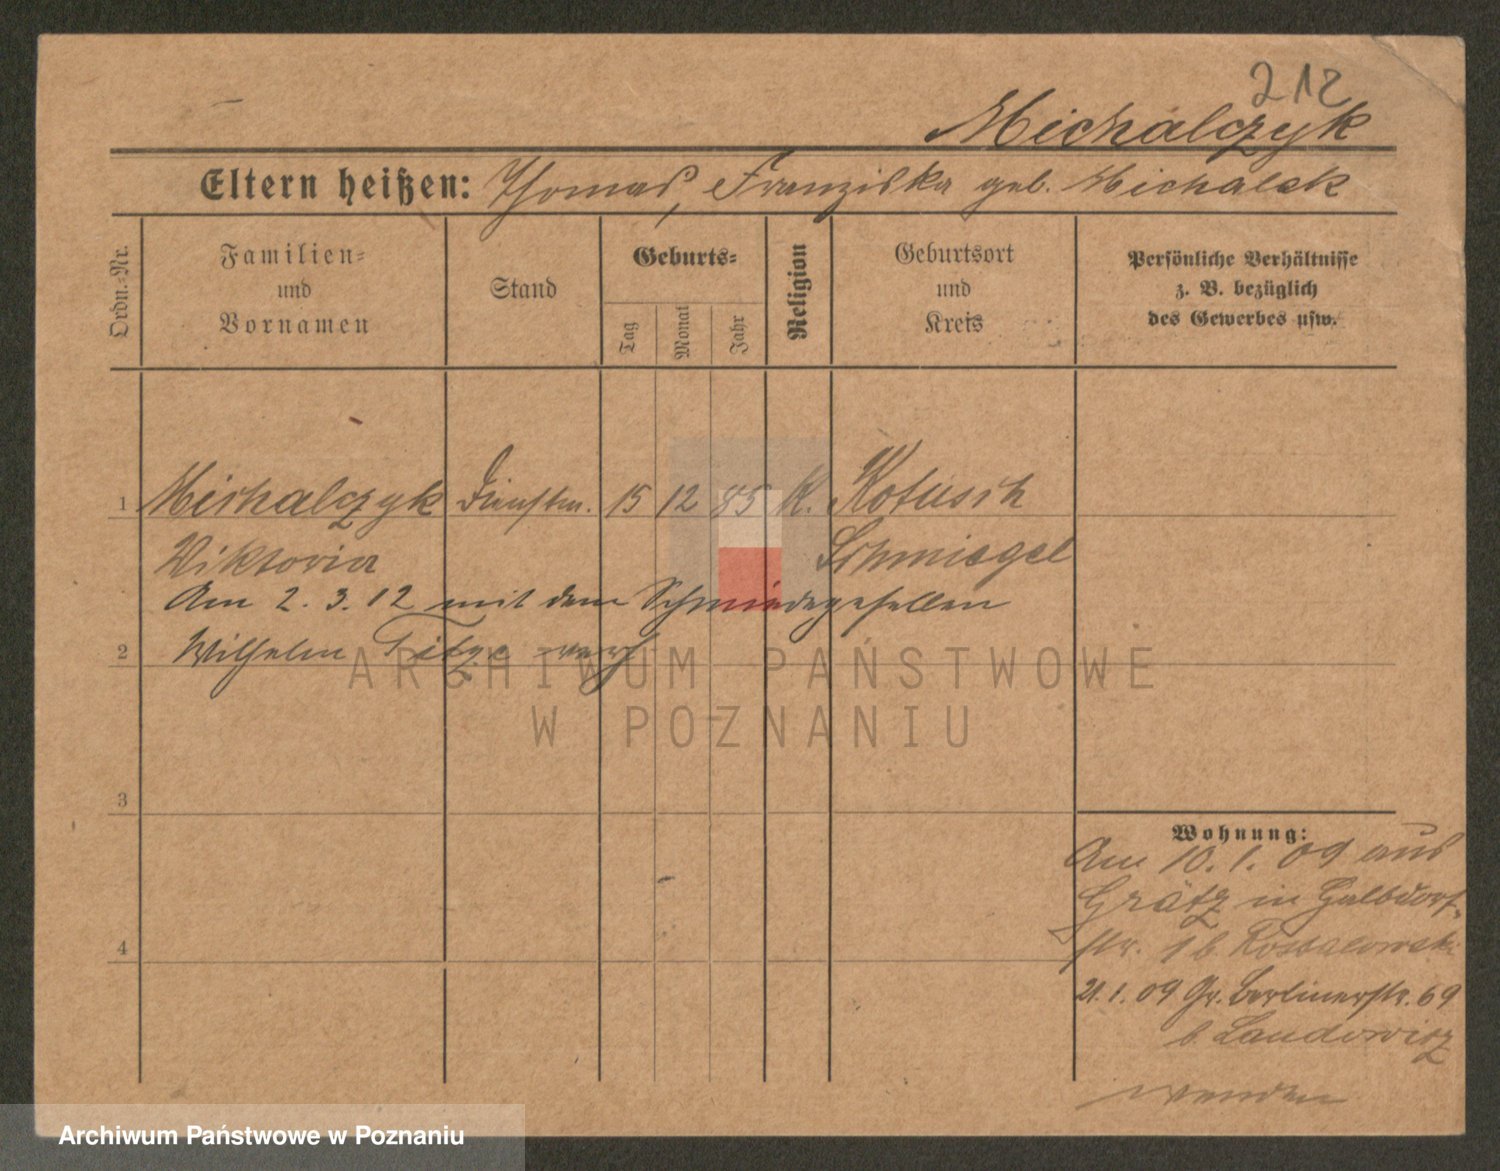 212
Michalczyk
Eltern heißen: Thomas, Franziska geb. Michalak
Ordn.-Nr.
Familien-
und
Vornamen
Stand
Geburts-
Tag
Monat
Jahr
Religion
Geburtsort
und
Kreis
Persönliche Verhältnisse
z. B. bezüglich
des Gewerbes usw.
1 Michalczyk Dienstm. 15 12 85 K. Kotusch
Viktoria Schmiegel
Am 2. 3. 12 mit dem Schmiedegesellen
2 Wilhelm verh
3
4
Wohnung:
Am 10. 1. 09 aus
Grätz in
str. 1 b.
21. 1. 09 Gr. Berlinerstr. 69
b. Landowicz
wenden
ARCHIWUM PAŃSTWOWE
W POZNANIU
Archiwum Państwowe w Poznaniu